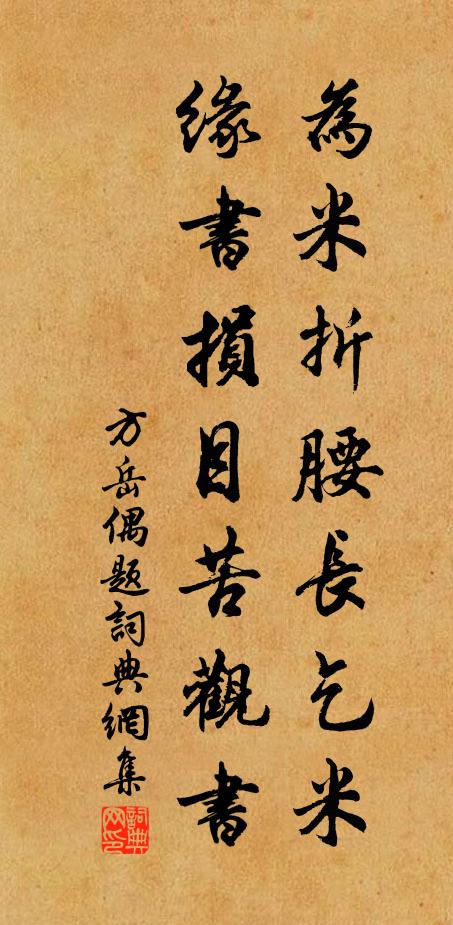 為米折腰長乞米
緣書損目苦觀書
方岳偶題詞典網集
詞典網印